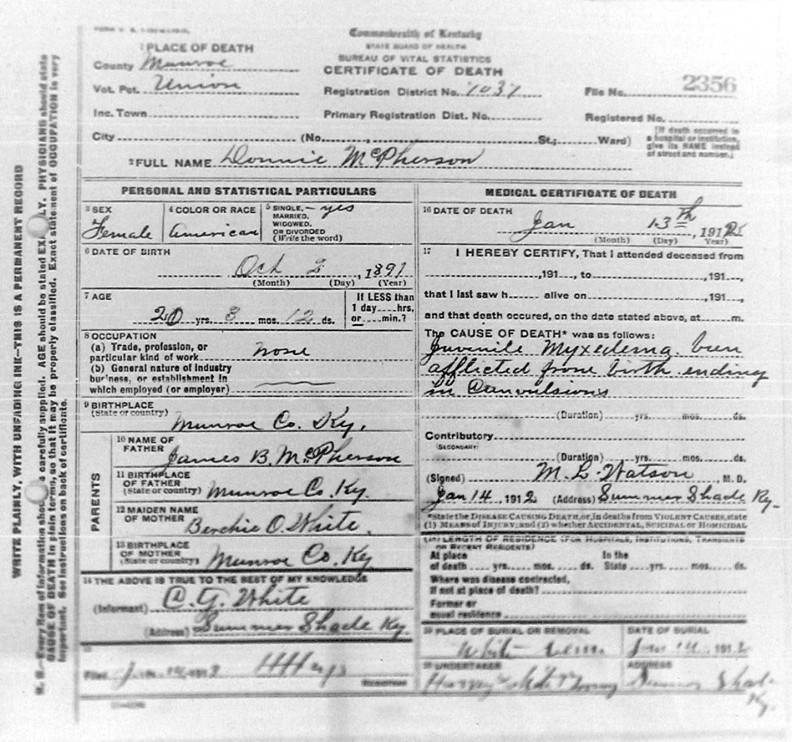 Commonwealth of Kentucky
STATE BOARD OF HEALTH
BUREAU OF VITAL STATISTICS
CERTIFICATE OF DEATH
1 PLACE OF DEATH
County Munroe
Vot. Pct. Union
Registration District No. 1037
File No. 2356
Inc. Town
Primary Registration Dist. No.
Registered No.
City (No. St.; Ward)
[If death occurred in a hospital or institution, give its NAME instead of street and number.]
2 FULL NAME Donnie McPherson
PERSONAL AND STATISTICAL PARTICULARS
3 SEX
Female
4 COLOR OR RACE
American
5 SINGLE, - yes
MARRIED,
WIDOWED,
OR DIVORCED
(Write the word)
6 DATE OF BIRTH
Oct 2, 1891
(Month) (Day) (Year)
7 AGE
20 yrs. 3 mos. 12 ds.
If LESS than
1 day....hrs,
or....min.?
8 OCCUPATION
(a) Trade, profession, or
particular kind of work none
(b) General nature of industry
business, or establishment in
which employed (or employer)
9 BIRTHPLACE
(State or country) Munroe Co. Ky.
PARENTS
10 NAME OF
FATHER James B. McPherson
11 BIRTHPLACE
OF FATHER
(State or country) Munroe Co. Ky.
12 MAIDEN NAME
OF MOTHER Berchie O. White
13 BIRTHPLACE
OF MOTHER
(State or country) Munroe Co. Ky
14 THE ABOVE IS TRUE TO THE BEST OF MY KNOWLEDGE
(Informant) C. G. White
(Address) Summer Shade Ky.
15
Filed
REGISTRAR
MEDICAL CERTIFICATE OF DEATH
16 DATE OF DEATH
Jan 13th, 1912
(Month) (Day) (Year)
17 I HEREBY CERTIFY, That I attended deceased from
, 191...., to , 191....,
that I last saw h...... alive on , 191....,
and that death occured, on the date stated above, at ......m.
The CAUSE OF DEATH* was as follows:
Juvenile Myxedema. been
afflicted from birth ending
in Convulsions
(Duration) yrs. mos. ds.
Contributory
SECONDARY
(Duration) yrs. mos. ds.
(Signed) M. L. Watson, M. D.
Jan 14, 1912 (Address) Summer Shade Ky.
*State the DISEASE CAUSING DEATH, or, in deaths from VIOLENT CAUSES, state
(1) MEANS OF INJURY; and (2) whether ACCIDENTAL, SUICIDAL OR HOMICIDAL
18 LENGTH OF RESIDENCE (FOR HOSPITALS, INSTITUTIONS, TRANSIENTS
OR RECENT RESIDENTS)
At place In the
of death.... yrs. .... mos. .... ds. State.... yrs. .... mos. .... ds.
Where was disease contracted,
If not at place of death?
Former or
usual residence
19 PLACE OF BURIAL OR REMOVAL
White Cem.
DATE OF BURIAL
Jan 14, 1912
20 UNDERTAKER
ADDRESS
Summer Shade
Ky.
WRITE PLAINLY, WITH UNFADING INK—THIS IS A PERMANENT RECORD
N. B.—Every item of information should be carefully supplied. AGE should be stated EXACTLY. PHYSICIANS should state
CAUSE OF DEATH in plain terms, so that it may be properly classified. Exact statement of OCCUPATION is very
important. See instructions on back of certificate.